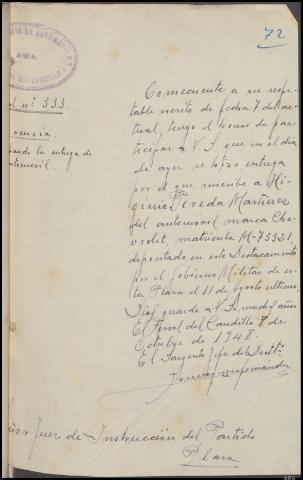 72
DE AUTOMOVILES
DEL CAUDILLO
nº 333.
Consecuente a su respe-
table escrito de fecha 7 del ac-
tual, tengo el honor de par-
ticipar a V.S. que en el dia
de ayer se hizo entrega
por el que suscribe a Hi-
ginio Pereda Martinez
del automovil marca Che-
vrolet, matricula M-73331,
depositado en este Destacamento
por el Gobierno Militar de es-
ta Plaza el 11 de Agosto ultimo.
la entrega de
automóvil.
Dios guarde a V.S. muchos años
El Ferrol del Caudillo 8 de
Octubre de 1948.
El Sargento Jefe del Destº
Juez de Instrucción del Partido
Plaza